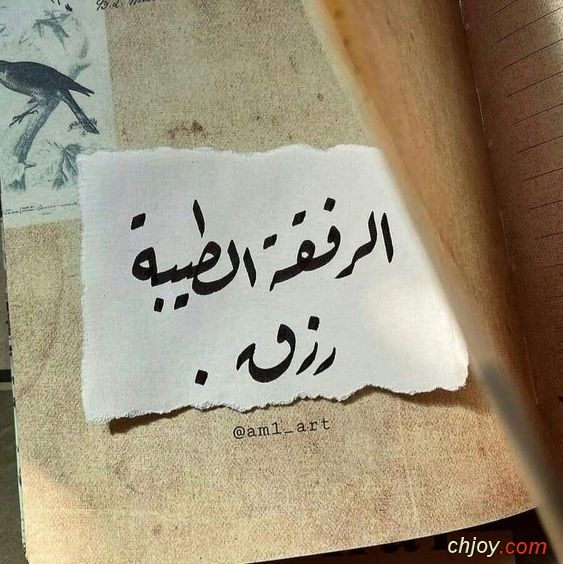 الرفقة الطيبة
رزق .
@am1_art
chjoy.com